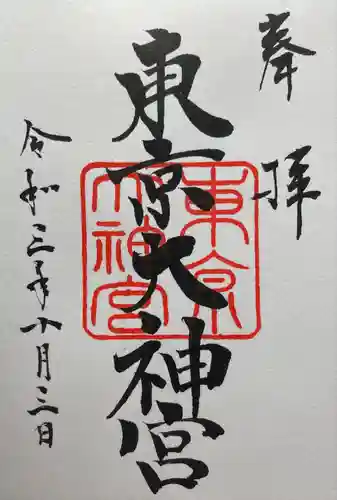 奉拝
東京大神宮
東京大神宮
令和三年十月三日